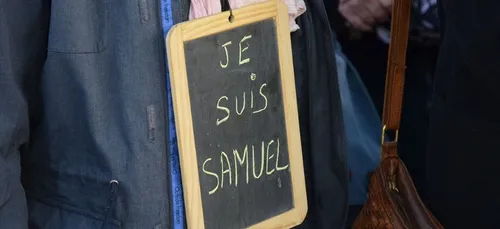 JE
SUIS
SAMUEL